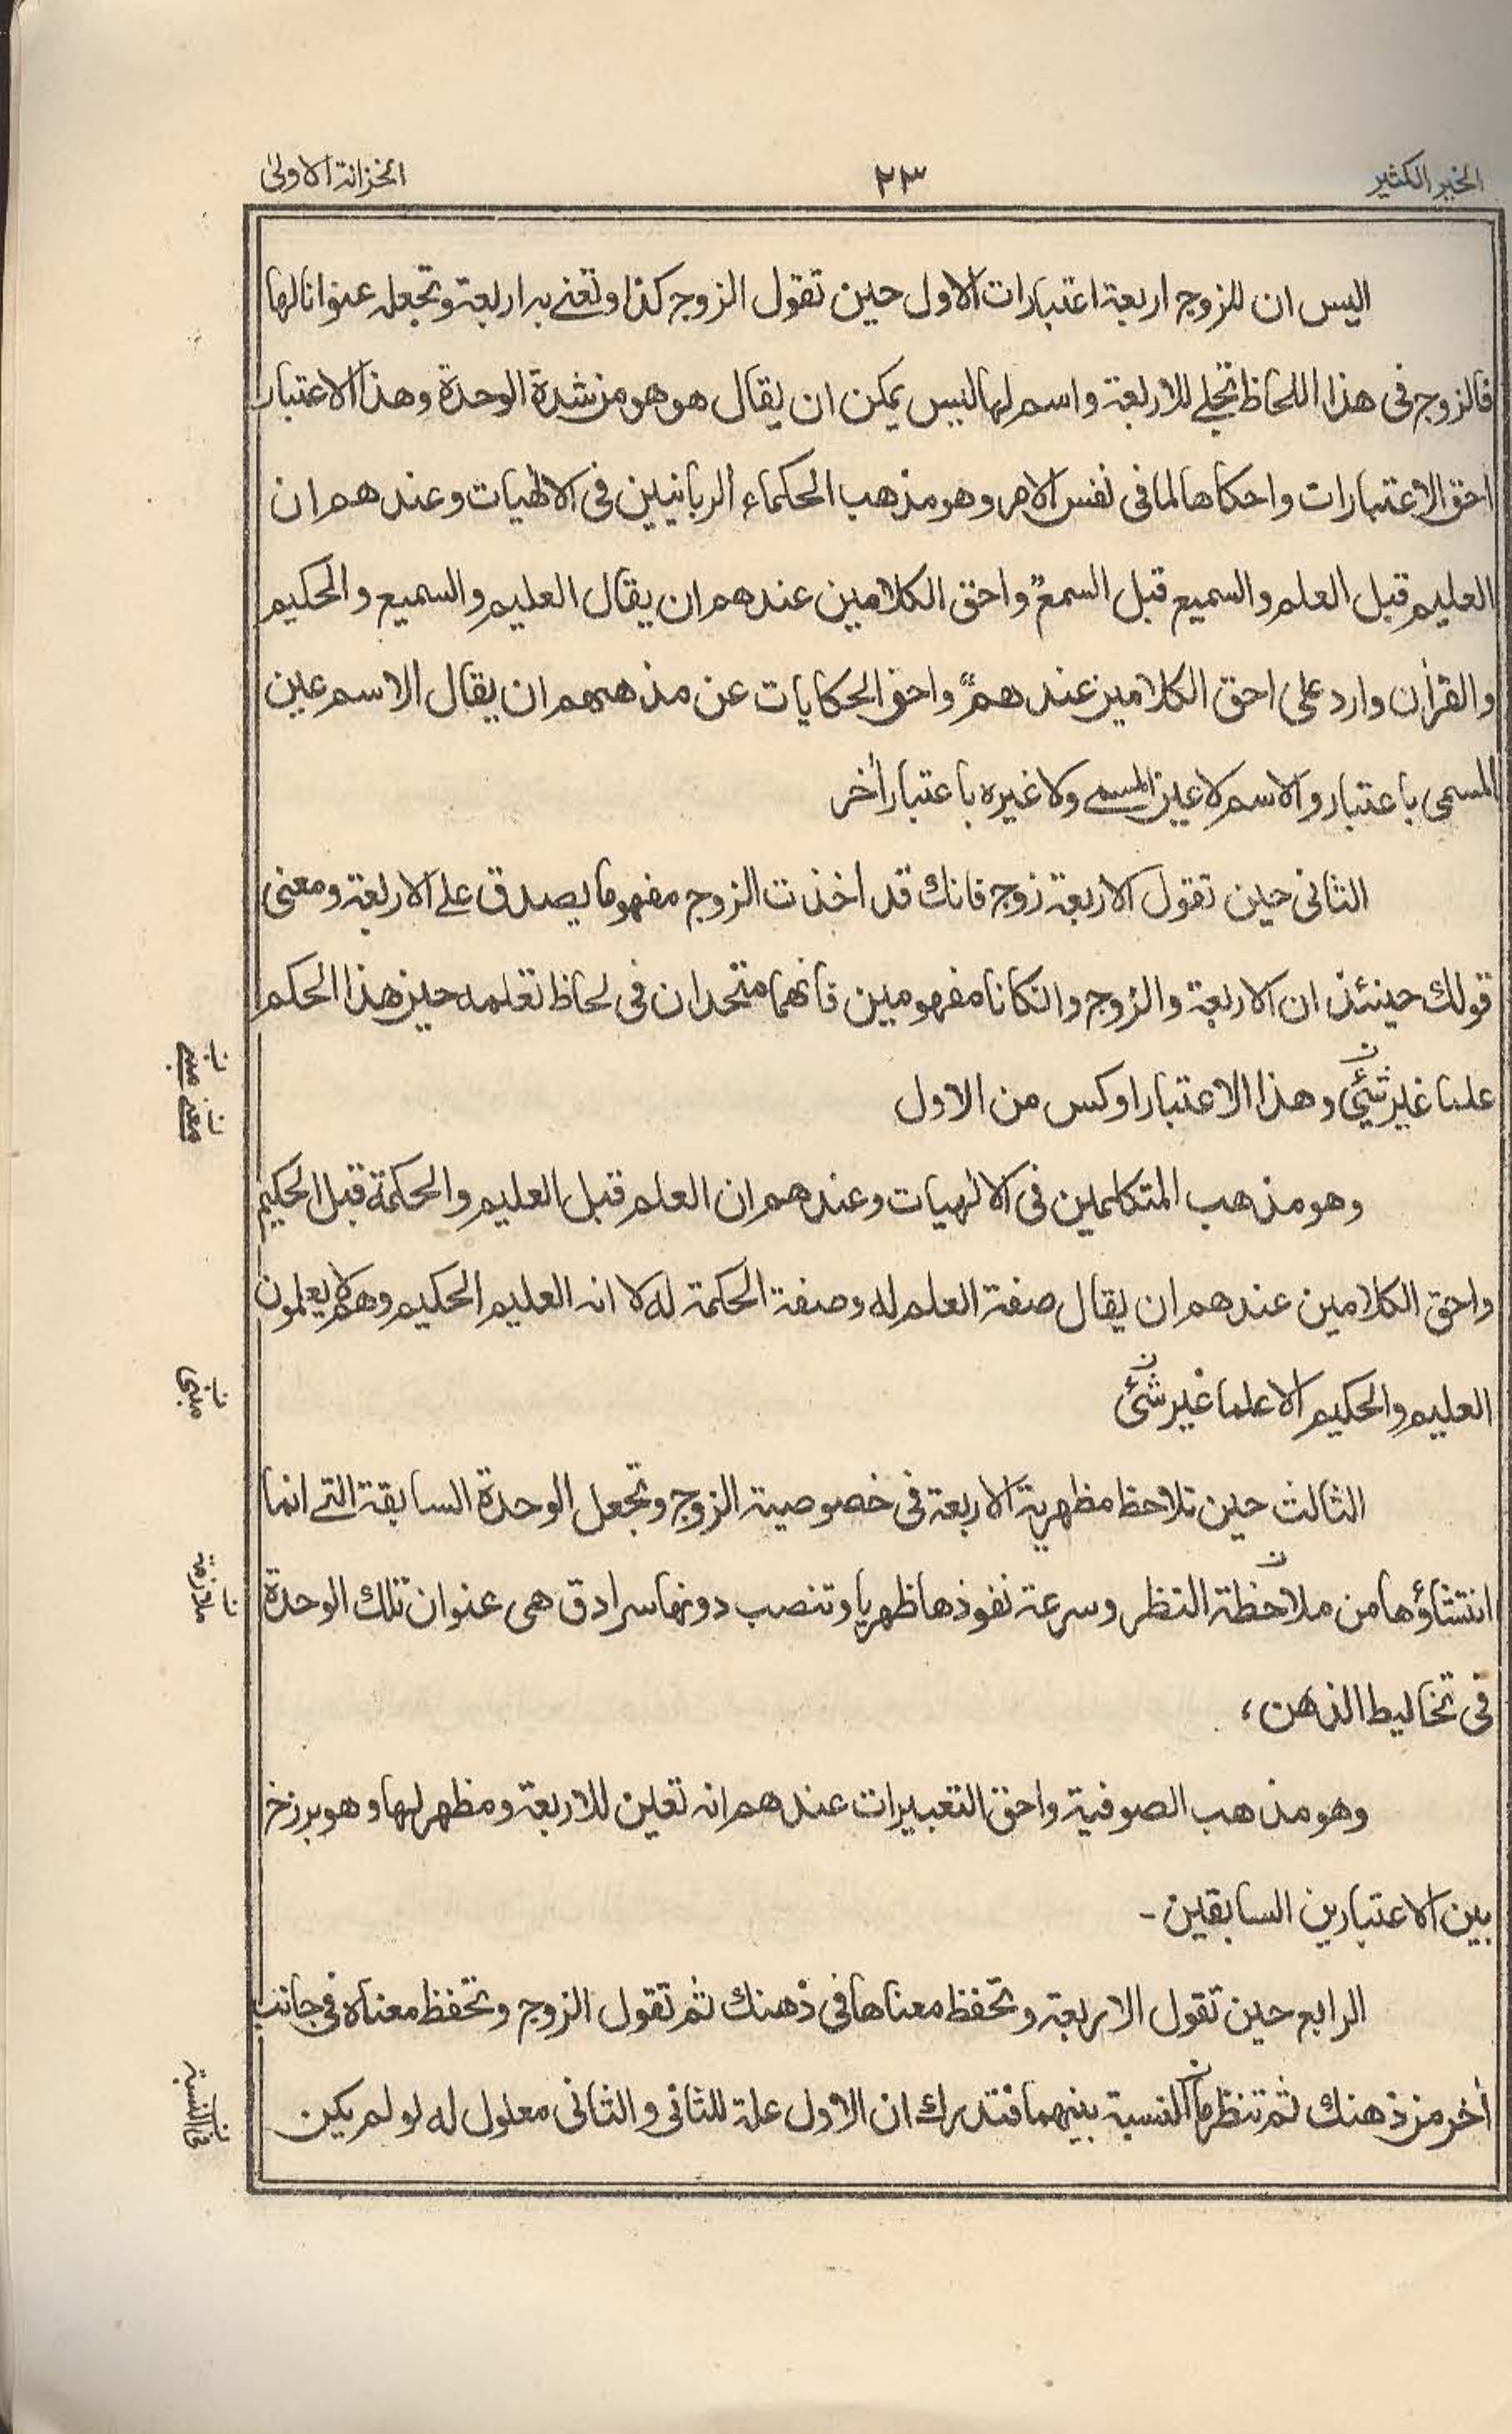 الخير الكثير
٢٣
الخزانة الاولىٰ
اليس ان للزوج اربعة اعتبارات الاول حين تقول الزوج كذا وتعنے به اربعة وتجعله عنوانا لها
فالزوج فى هذا اللحاظ تجلے للاربعة واسم لها ليس يمكن ان يقال هو هو من شدة الوحدة وهذا الاعتبار
احق الاعتبارات واحكاها لما فى نفس الامر وهو مذهب الحكماء الربانيين فى الالٰهيات وعندهم ان
العليم قبل العلم والسميع قبل السمع واحق الكلامين عندهم ان يقال العليم والسميع والحكيم
والقرأن وارد على احق الكلامين عندهم واحق الحكايات عن مذهبهم ان يقال الاسم عين
المسمى باعتبار والاسم لا عين المسمے ولا غيره باعتبار أخر
الثانى حين تقول الاربعة زوج فانك قد اخذت الزوج مفهوما يصدق علے الاربعة ومعنى
قولك حينئذ ان الاربعة والزوج وان كانا مفهومين فانهما متحدان فى لحاظ تعلمه حين هذا الحكم
علما غير شيئى وهذا الاعتبار اوكس من الاول
وهو مذهب المتكلمين فى الالهيات وعندهم ان العلم قبل العليم والحكمة قبل الحكيم
واحق الكلامين عندهم ان يقال صفة العلم له وصفة الحكمة له لا انه العليم الحكيم وهم لا يعلمون
العليم والحكيم الا علما غير شئى
الثالث حين تلاحظ مظهرية الاربعة فى خصوصية الزوج وتجعل الوحدة السابقة التے انما
انتشاؤها من ملاحظة النظر وسرعة نفوذها ظهريا وتنصب دونها سرادق هى عنوان تلك الوحدة
فى تخاليط الذهن،
وهو مذهب الصوفية واحق التعبيرات عندهم انه تعين للاربعة ومظهر لها وهو برزخ
بين الاعتبارين السابقين -
الرابع حين تقول الاربعة وتحفظ معناها فى ذهنك ثم تقول الزوج وتحفظ معناه فى جانب
أخر من ذهنك ثم تنظر ما النسبة بينهما فتدرك ان الاول علة للثانى والثانى معلول له لو لم يكن